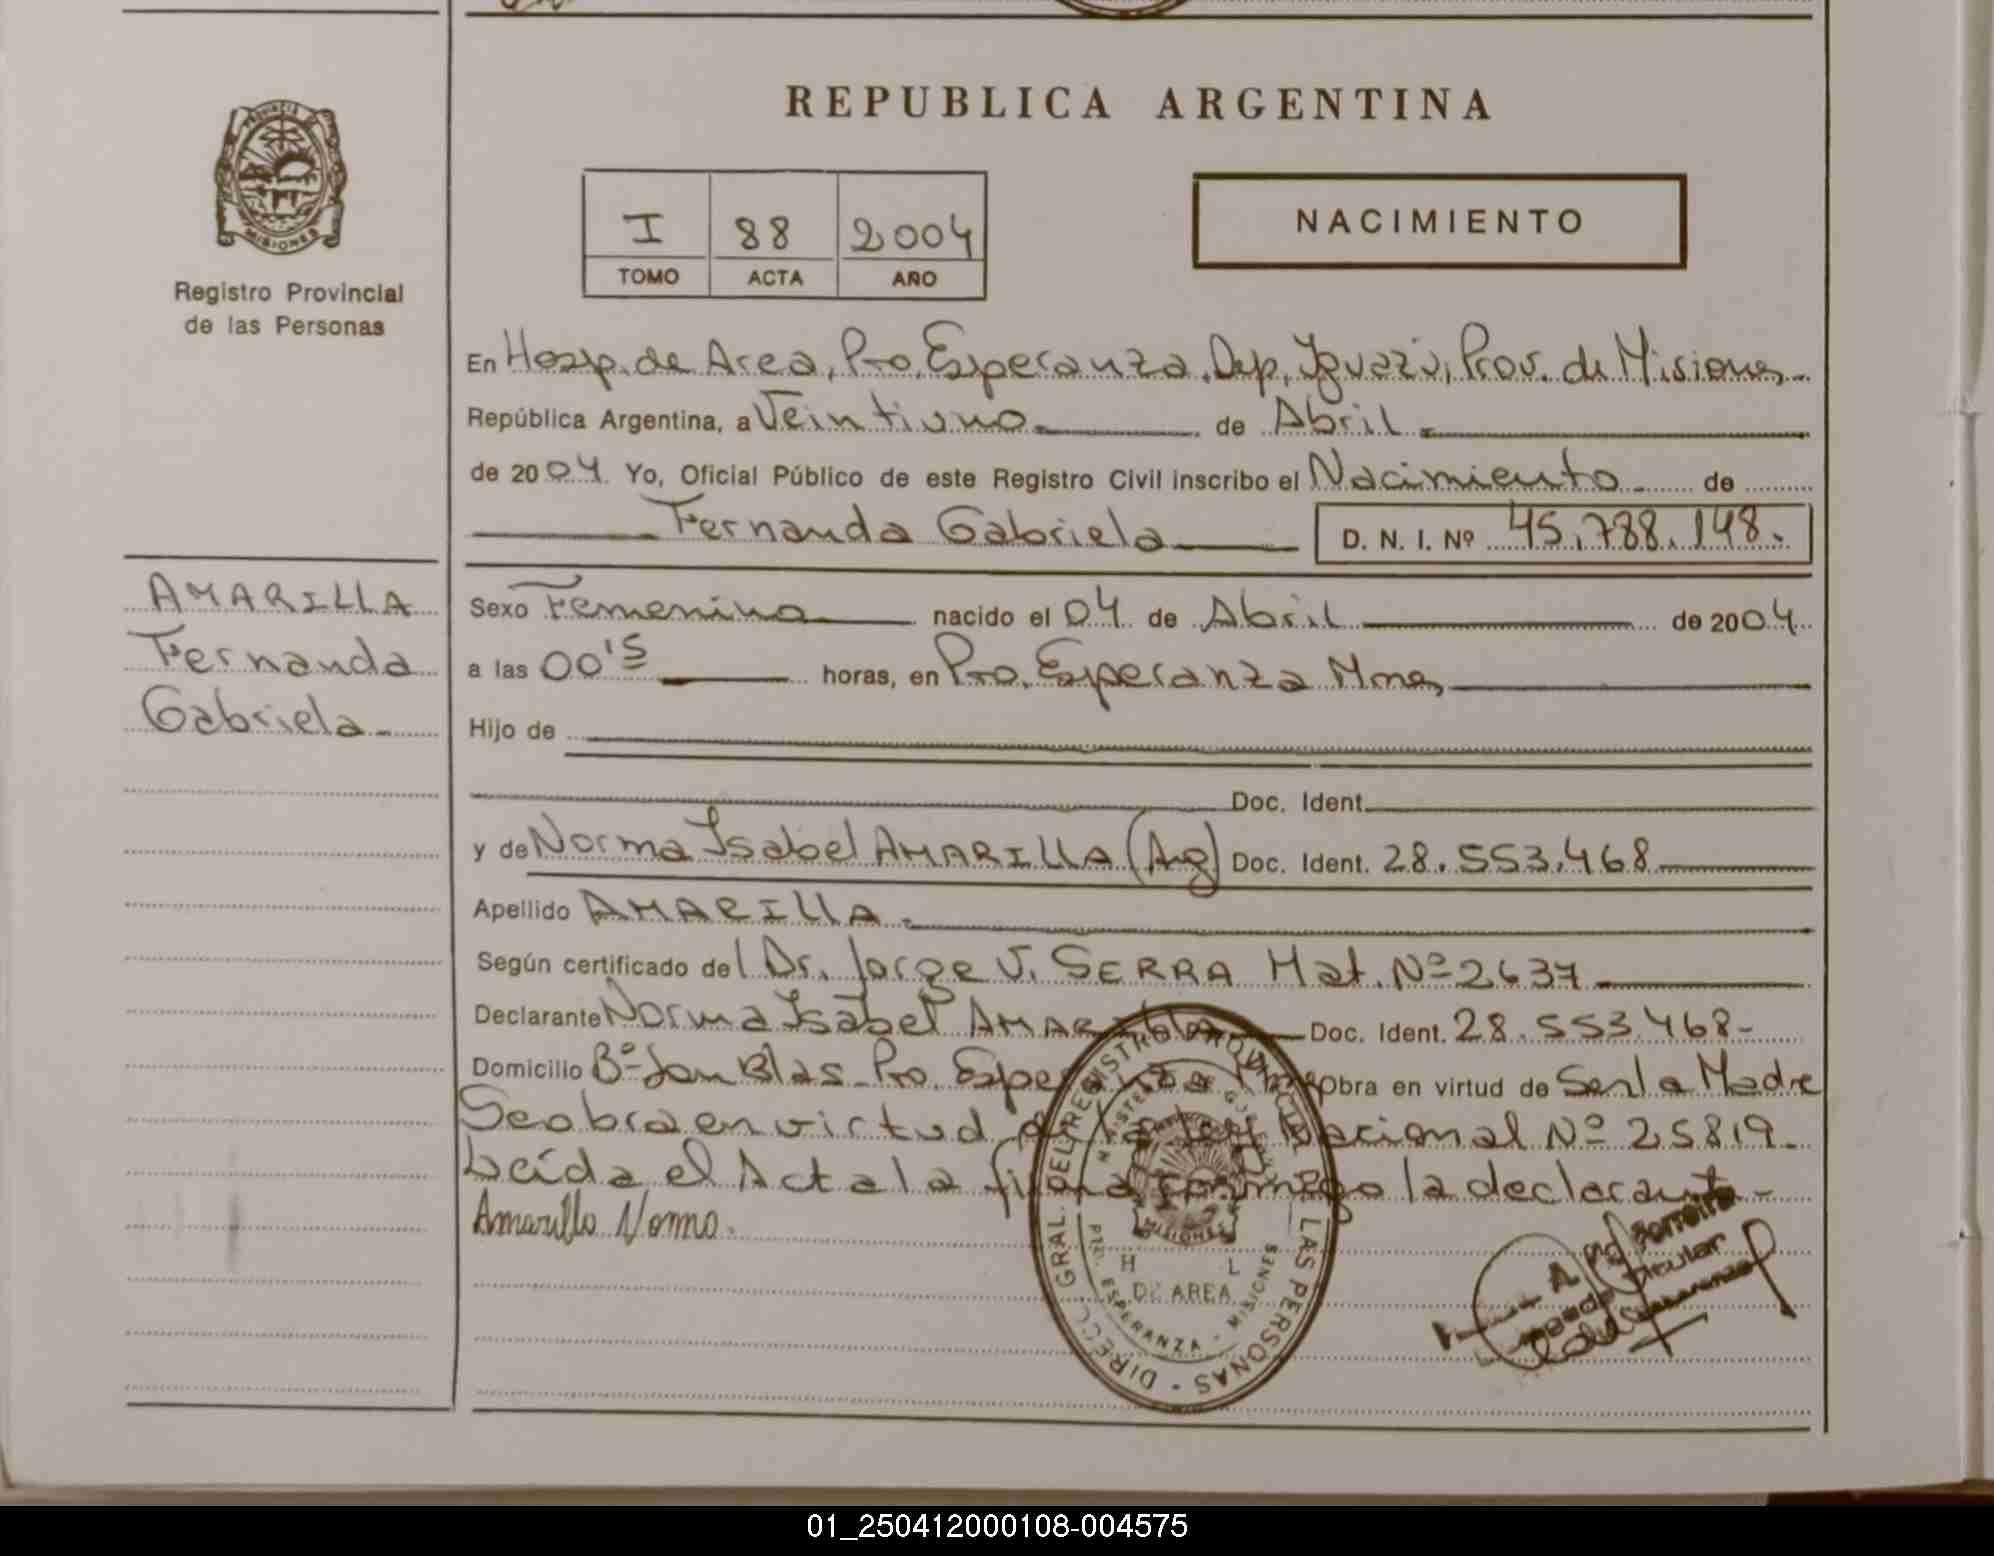 REPUBLICA ARGENTINA
PROVINCIA DE
MISIONES
Registro Provincial
de las Personas
I 88 2004
TOMO ACTA AÑO
NACIMIENTO
En Hosp. de Area, Pto. Esperanza, Dep. Iguazú, Prov. de Misiones
República Argentina, a Veintiuno de Abril
de 2004. Yo, Oficial Público de este Registro Civil inscribo el Nacimiento de
Fernanda Gabriela D. N. I. Nº 45.788.148.
AMARILLA
Fernanda
Gabriela
Sexo Femenino nacido el 04 de Abril de 2004
a las 00'5 horas, en Pto. Esperanza Mnes
Hijo de
Doc. Ident.
y de Norma Isabel AMARILLA (Arg) Doc. Ident. 28.553.468
Apellido AMARILLA
Según certificado del Dr. Jorge V. SERRA Mat. Nº 2637
Declarante Norma Isabel AMARILLA Doc. Ident. 28.553.468-
Domicilio Bº San Blas. Pto. Esperanza Obra en virtud de Ser la Madre
Se obra en virtud de la Ley Nacional Nº 25819.
Leída el Acta la firma conmigo la declarante-
Amarilla Norma.
DIRECC. GRAL. DEL REGISTRO PROVINCIAL LAS PERSONAS
MISIONES
H L
DE AREA
PTO. ESPERANZA - MISIONES
Ferreira
01_250412000108-004575